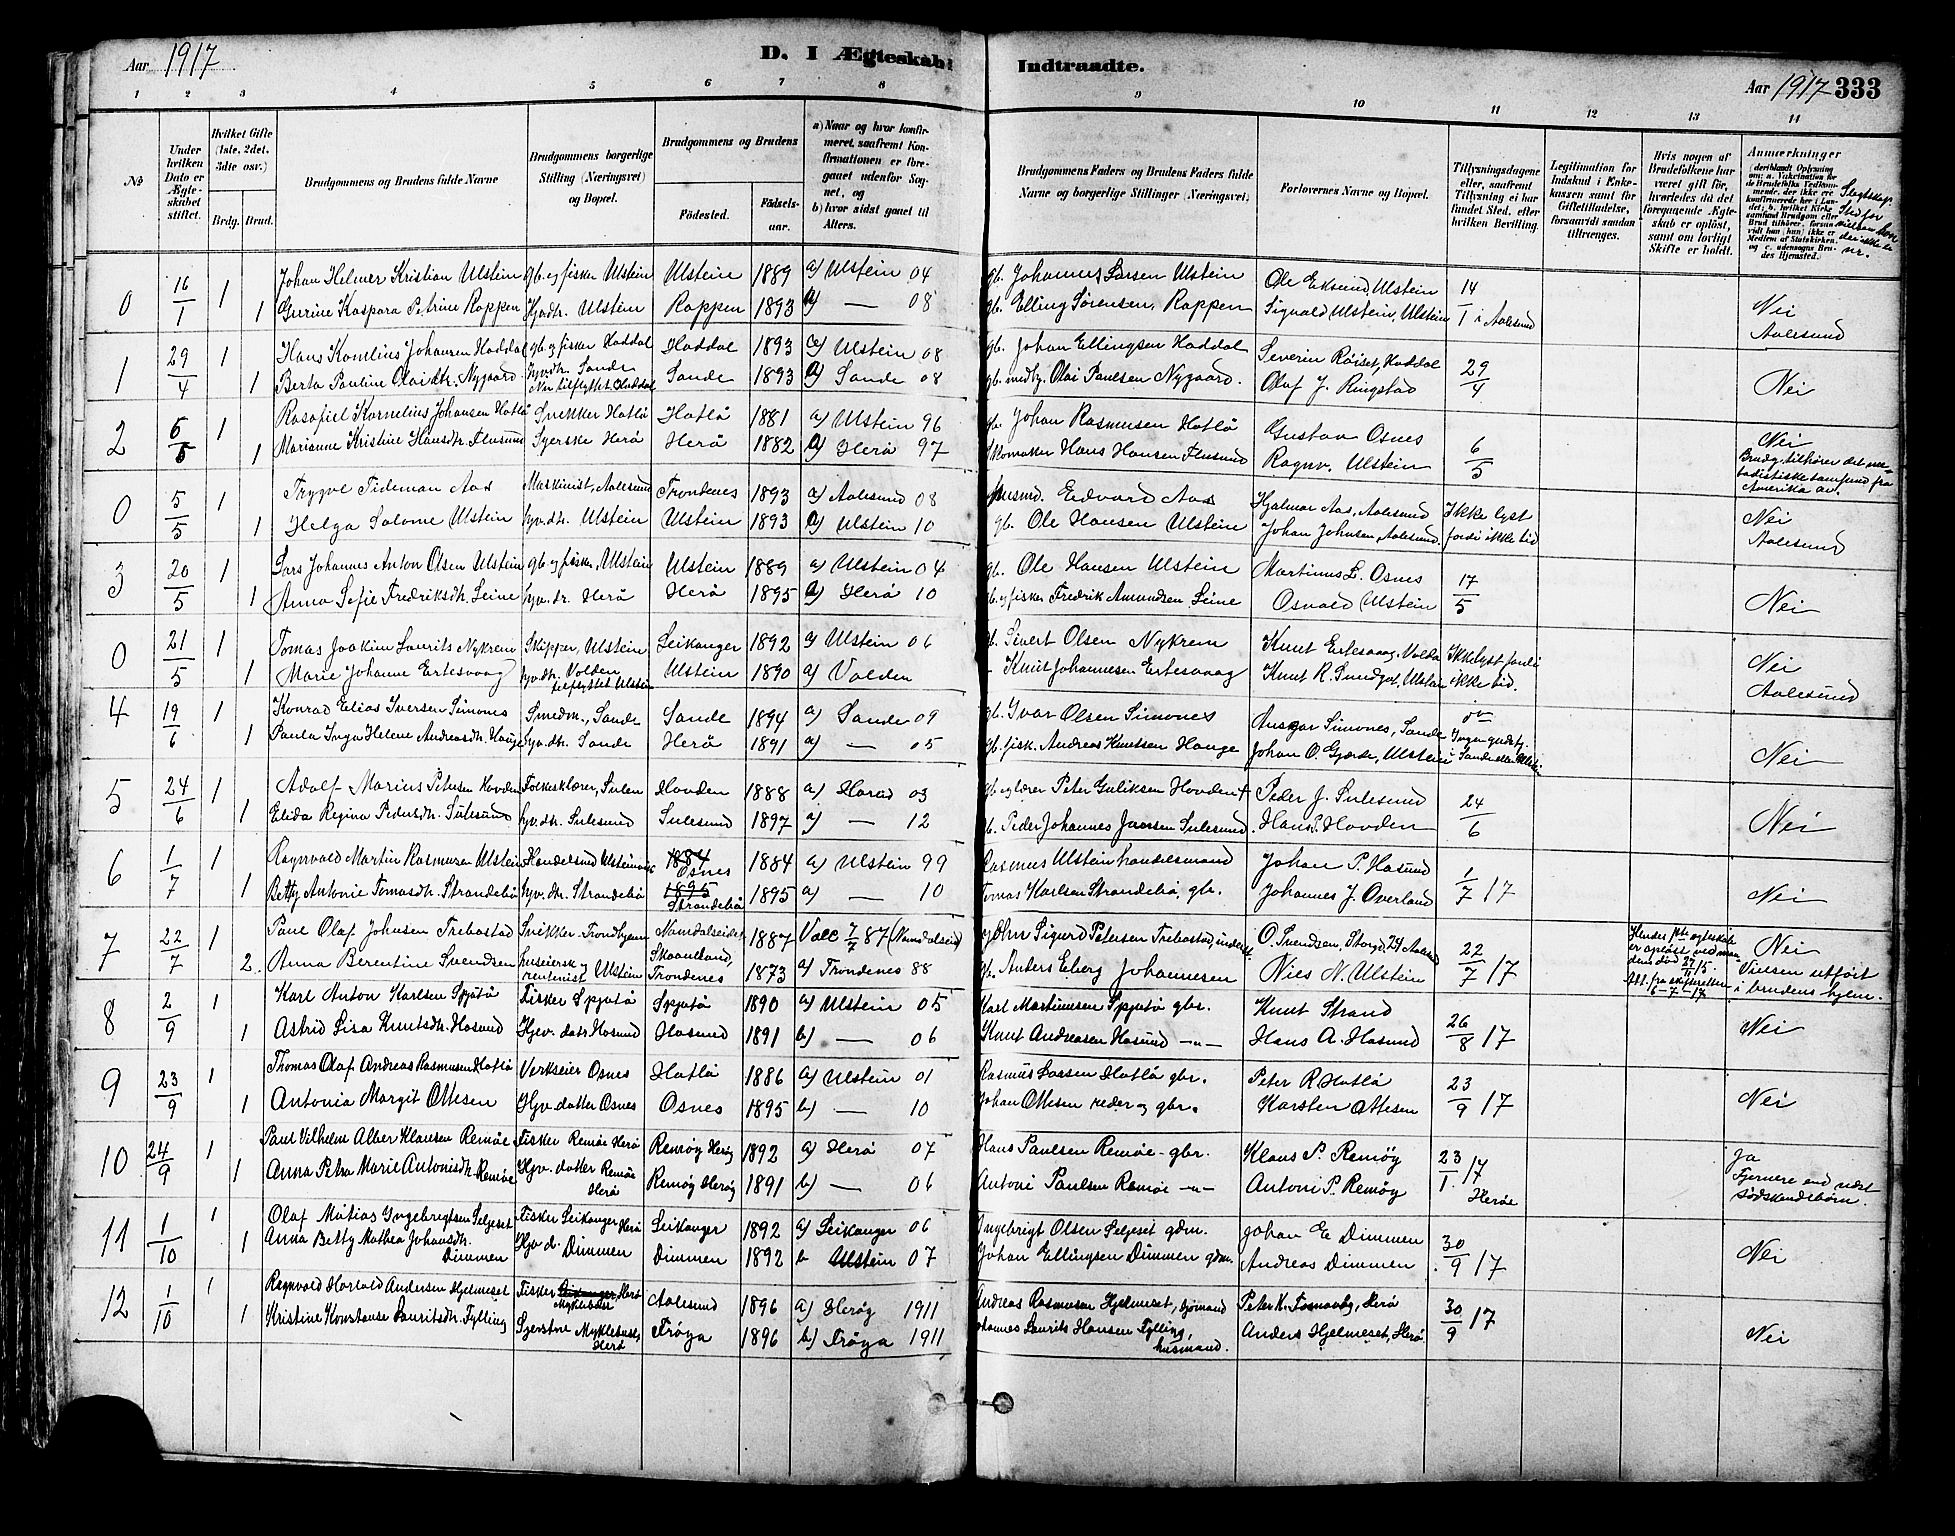 Aar 1917
D. I Ægteskab
Indtraadte.
Aar 1917 333
1 2 3 4 5 6 7 8 9 10 11 12 13 14
No
Under hvilken Dato er Ægteskabet stiftet.
Hvilket Gifte (1ste, 2det, 3die osv.)
Brdg. Brud.
Brudgommens og Brudens fulde Navne
Brudgommens borgerlige Stilling (Næringsvei) og Bopæl.
Brudgommens og Brudens
Fødested.
Fødselsaar.
a) Naar og hvor konfirmeret, saafremt Konfirmationen er foregaaet udenfor Sognet, og
b) hvor sidst gaaet til Alters.
Brudgommens Faders og Brudens Faders fulde Navne og borgerlige Stillinger (Næringsvei).
Forlovernes Navne og Bopæl.
Tillysningsdagene eller, saafremt Tillysning ei har fundet Sted, efter hvilken Bevilling.
Legitimation for Indskud i Enkekassen samt for Giftetilladelse, forsaavidt saadan tiltrænges.
Hvis nogen af Brudefolkene har været gift før, hvorledes da det foregaaende Ægteskab er opløst, samt om lovligt Skifte er holdt.
Anmærkninger
Slegtskap.
0 16/1 1 Johan Helmer Kristian Ulstein gb. og fisker Ulstein Ulstein 1889 a) Ulstein 04 gb. Johannes Larsen Ulstein Ole Eksund, Ulstein 14
1 Gurine Kaspara Petrine Roppen Hjvdtr. Ulstein Roppen 1893 a) — 08 gb. Elling Sørensen Roppen Sigvald Ulstein, Ulstein 1 i Aalesund Nei Aalesund
1 29/4 1 Hans Kornelius Johansen Haddal gb. og fisker Haddal Haddal 1893 a) Ulstein 08 gb. Johan Ellingsen Haddal Severin Røiset, Haddal 29/4
1 Berta Pauline Olaidtr. Nygaard hjvdtr. Sande Nu tilflyttet Haddal Sande 1893 a) Sande 08 gb. medby. Olai Paulsen Nygaard. Olaf J. Ringstad Nei
2 6/5 1 Rasafiel Kornelius Johansen Hatlø Snekker Hatlø Hatlø 1881 a) Ulstein 96 gb. Johan Rasmussen Hatlø Gustav Osnes 6/5
1 Marianne Kristine Hansdtr. Flusund Syerske Herø Herø 1882 a) Herø 97 Skomaker Hans Hansen Flusund Ragnv. Ulstein Nei
Brudg. tilhører det metodistiske samfund fra Amerika av.
0 5/5 1 Trygve Tideman Aas Maskinist, Aalesund Trondenes 1893 a) Aalesund 08 Edvard Aas Hjalmar Aas, Aalesund Ikke lyst
1 Helga Salome Ulstein hjv.dtr. Ulstein Ulstein 1893 a) Ulstein 10 gb. Ole Hansen Ulstein Johan Johnsen, Aalesund. fordi ikke tid Nei Aalesund
3 20/5 1 Lars Johannes Anton Olsen Ulstein gb og fisker, Ulstein Ulstein 1889 a) Ulstein 04 gb. Ole Hansen Ulstein Martinus L. Osnes 17/5
1 Anna Sofie Fredriksdtr. Leine hjv. dr. Herø Herø 1895 a) Herø 10 gb. og fisker Fredrik Amundsen Leine Osvald Ulstein Nei
0 21/5 1 Tomas Joakim Laurits Nykrem Skipper, Ulstein Leikanger 1892 a) Ulstein 06 gb. Sivert Olsen Nykrem Knut Ertesvaag, Volda Ikke lyst fordi
1 Marie Johanne Ertesvaag hjv.dtr. Volden tilflyttet Ulstein Ulstein 1890 a) Volden - Knut Johannesen Ertesvaag Knut R. , Ulstein ikke tid. Nei Aalesund
4 19/6 1 Konrad Elias Iversen Simones Smedm., Sande Sande 1894 a) Sande 09 gb. Ivar Olsen Simones Ansgar Simones, Sande
1 Paula Inga Helene Andreasdtr. Hauge hjv.dtr. Sande Herø 1891 a) — 05 gb. fisk. Andreas Knutsen Hauge Johan O. Gjerde, Ulstein Nei
5 24/6 1 Adolf Marius Petersen Hovden Folkesklærer, Sulen Hovden 1888 a) Harad 03 gb. og lærer Peter Guliksen Hovden + Peder J. Sulesund 24/6
1 Elida Regina Pedersdtr. Sulesund hjv.dtr. Sulesund Sulesund 1897 a) — 12 gb. Peder Johannes Iversen Sulesund. Hans P. Hovden Nei
6 1/7 1 Ragnvald Martin Rasmussen Ulstein Handelsmd Ulsteinvik 1884 Osnes 1884 a) Ulstein 99 Rasmus Ulstein handelsmand Johan P. Hasund 1/7 17
1 Betty Antonie Tomasdtr. Strandebø hjv. dtr. Strandebø 1895 Strandebø 1895 a) — 10 Tomas Karlsen Strandebø, gbr. Johannes J. Overland Nei
7 22/7 1 Paul Olaf Johnsen Trebostad Snikker. Trondhjem Namdalseidet 1887 Vacc 7/7 87 (Namdalseid) John Sigurd Petersen Trebostad, O. Svendsen, Storgt 29 Aalesund 22/7 17
2. Anna Berentine Svendsen huseierske og rentenist Ulstein Skaanlland, Trondenes 1873 a) Trondenes 88 gb. Anders Eberg Johannesen Nies N. Ulstein
Hendes 1ste egteskab er opløst ved mandens død 27/11 15. Att. fra skifteretten 6-7-17
Nei Vielsen utført i brudens hjem.
8 2/9 1 Karl Anton Karlsen Spjutø Fisker Spjutø Spjutø 1890 a) Ulstein 05 Karl Martinusen Spjutø gbr. Knut Strand 26/8 17
1 Astrid Lisa Knutsdtr. Hasund Hjv. datr Hasund Hasund 1891 b) — 06 Knut Andreasen Hasund —"— Hans A. Hasund Nei
9 23/9 1 Thomas Olaf Andreas Rasmussen Hatlø Verkseier Osnes Hatlø 1886 a) Ulstein 01 Rasmus Larsen Hatlø gbr. Peter R Hatlø 23/9 17
1 Antonia Margit Ottesen Hjv. datter Osnes Osnes 1895 b) — 10 Johan Ottesen reder og gbr. Karsten Ottesen Nei
10 24/9 1 Paul Vilhelm Alber Klausen Remøe Fisker Remøe Herø Remøy Herøy 1892 a) Herø 07 Klaus Paulsen Remøe - gbr. Klaus P. Remøy 23/1 17 Herøe
1 Anna Petra Marie Antonisdtr. Remøe Hjv. datter Remøe Herø Remøy Herøy 1891 b) — 06 Antoni Paulsen Remøe —"— Antoni P. Remøy
Ja Fjernere end næst sødskendebørn.
11 1/10 1 Olaf Matias Ingebrigtsen Seljeset Fisker Leikanger Herø Leikanger 1892 a) Leikanger 06 Ingebrigt Olsen Seljeset gdm. Johan E Dimmen 30/9 17
1 Anna Betty Mathea Johansdtr. Dimmen Hjv d. Dimmen Dimmen 1892 b Ulstein 07 Johan Ellingsen Dimmen gdm. Andreas Dimmen Nei
12 1/10 1 Ragnvald Harald Andersen Hjelmeset Fisker Leikanger Myklebust Herø Aalesund 1896 a) Herøy 1911 Andreas Rasmusen Hjelmeset, sjømand Peter K. Fosnavåg, Herø 30/9 17
1 Kristine Konstanse Lauritsdtr. Fylling Syerske Myklebust, Herø Frøya 1896 b) Frøya 1911 Johannes Laurits Hansen Fylling, husmand. Anders Hjelmeset, Herø Nei